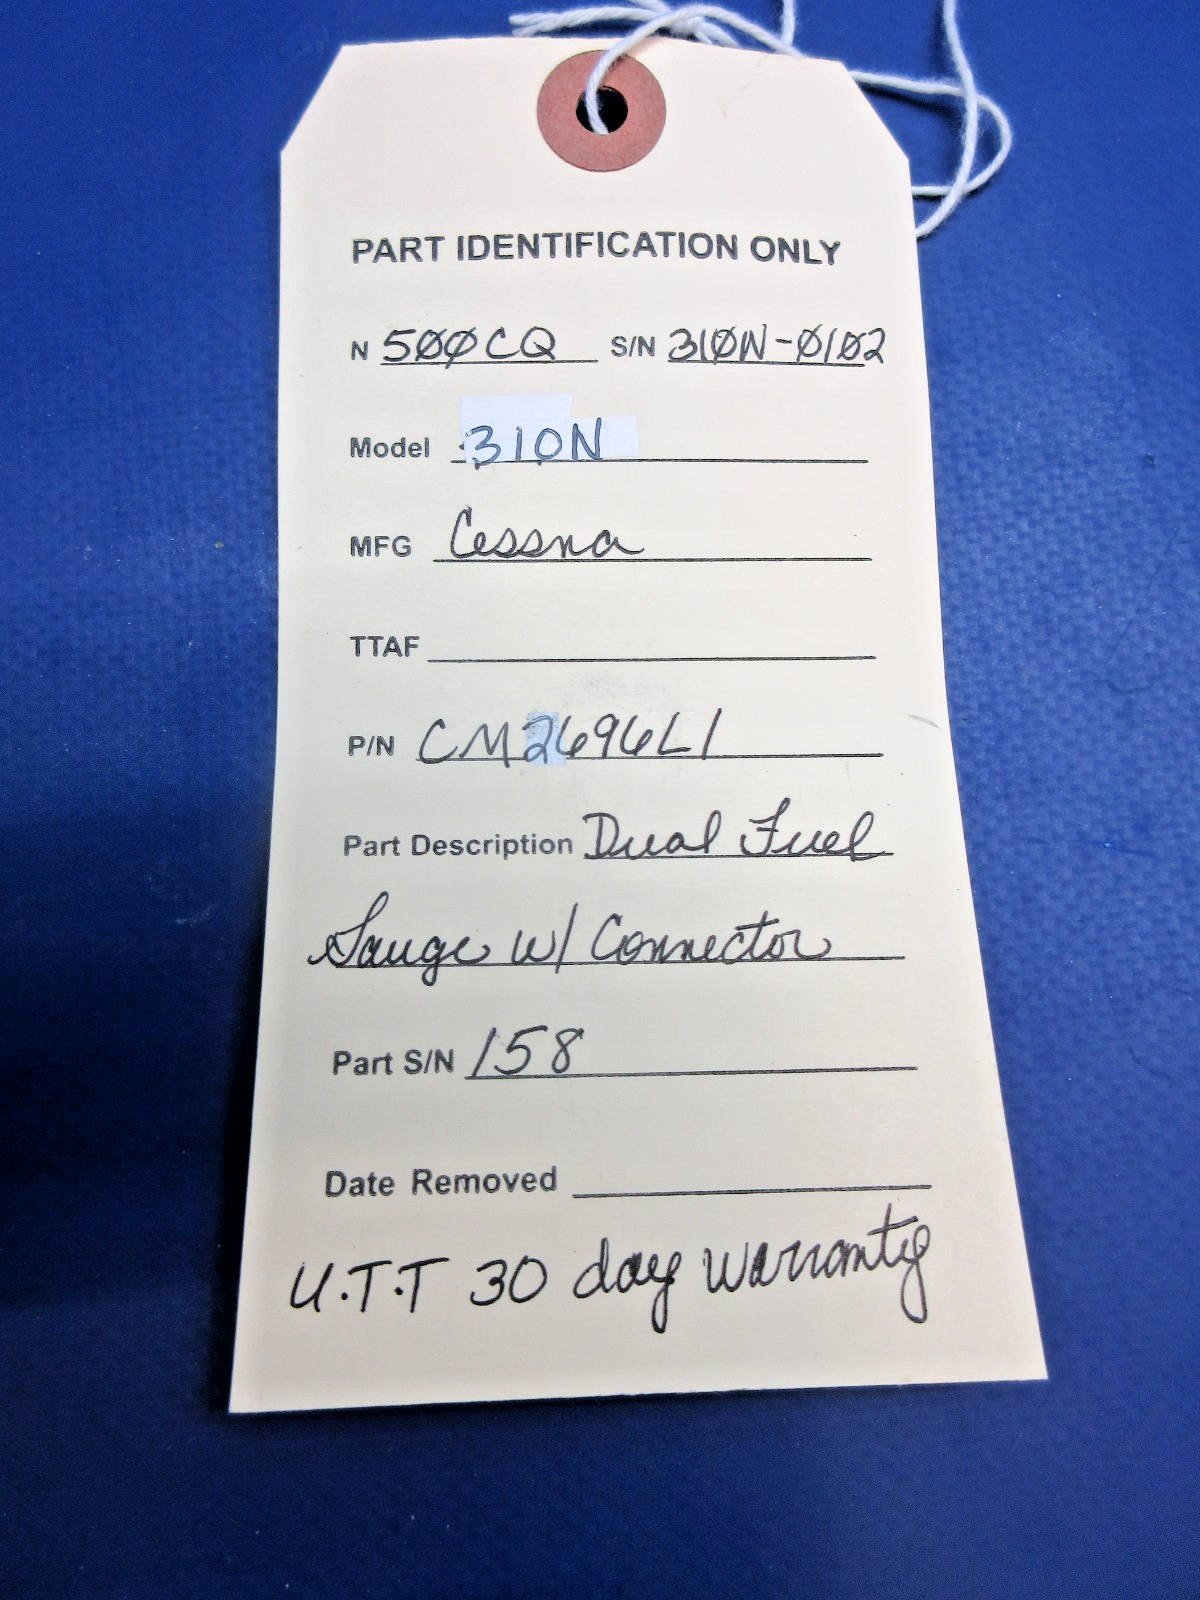 PART IDENTIFICATION ONLY
N 500CQ S/N 310N-0102
Model 310N
MFG Cessna
TTAF
P/N CM2696L1
Part Description Dual Fuel
Gauge w/ Connector
Part S/N 158
Date Removed
U.T.T 30 day warranty